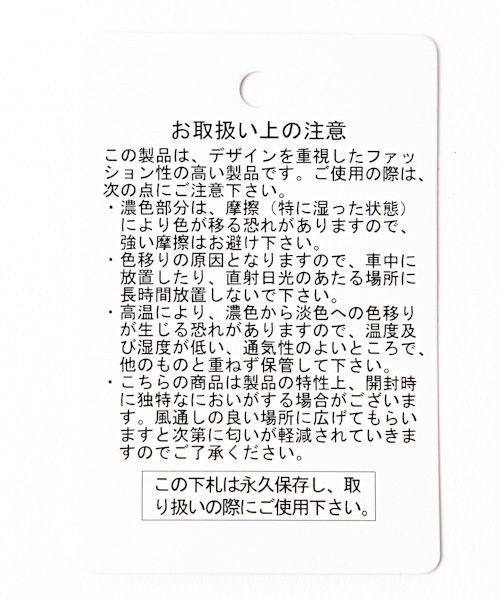 お取扱い上の注意
この製品は、デザインを重視したファッ
ション性の高い製品です。ご使用の際は、
次の点にご注意下さい。
・濃色部分は、摩擦（特に湿った状態）
により色が移る恐れがありますので、
強い摩擦はお避け下さい。
・色移りの原因となりますので、車中に
放置したり、直射日光のあたる場所に
長時間放置しないで下さい。
・高温により、濃色から淡色への色移り
が生じる恐れがありますので、温度及
び湿度が低い、通気性のよいところで、
他のものと重ねず保管して下さい。
・こちらの商品は製品の特性上、開封時
に独特なにおいがする場合がございま
す。風通しの良い場所に広げてもらい
ますと次第に匂いが軽減されていきま
すのでご了承ください。
この下札は永久保存し、取
り扱いの際にご使用下さい。